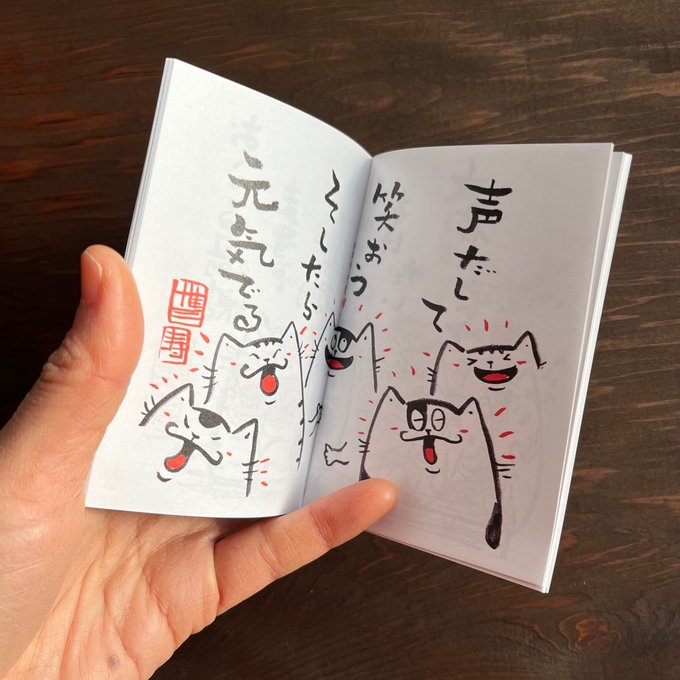 声だして
笑おう
そしたら
元気でる